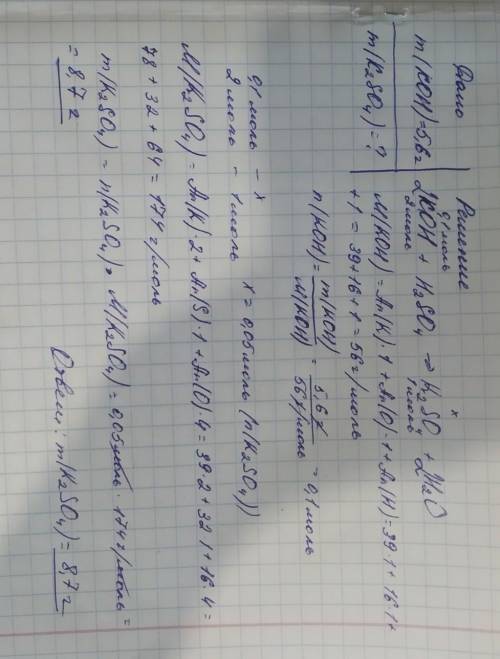 Дано
m(KOH)=5,6г
m(K₂SO₄)=?
Решение
0,1 моль x
2KOH + H₂SO₄ → K₂SO₄ + 2H₂O
2 моль 1 моль
M(KOH) = Ar(K)·1 + Ar(O)·1 + Ar(H) = 39·1 + 16·1 +
+1 = 39+16+1 = 56 г/моль
n(KOH) = m(KOH)/M(KOH) = 5,6 г/56 г/моль = 0,1 моль
0,1 моль – x
2 моль – 1 моль x = 0,05 моль (n(K₂SO₄))
M(K₂SO₄) = Ar(K)·2 + Ar(S)·1 + Ar(O)·4 = 39·2 + 32·1 + 16·4 =
78 + 32 + 64 = 174 г/моль
m(K₂SO₄) = n(K₂SO₄) · M(K₂SO₄) = 0,05 моль · 174 г/моль =
= 8,7 г
Ответ: m(K₂SO₄) = 8,7 г